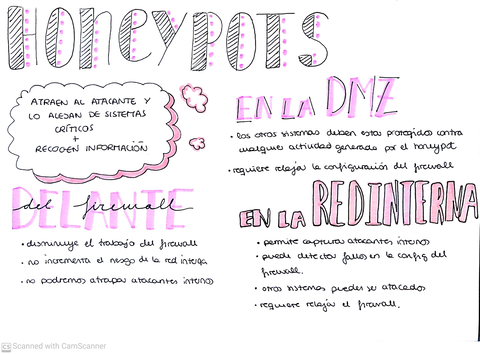 HONEYPOTS
ATRAEN AL ATACANTE Y
LO ALEJAN DE SISTEMAS
CRÍTICOS
+
RECOGEN INFORMACIÓN
DELANTE
del firewall
• disminuye el trabajo del firewall
• no incrementa el riesgo de la red interna
• no podremos atrapar atacantes internos
EN LA DMZ
• los otros sistemas deben estar protegidos contra
cualquier actividad generada por el honeypot
• requiere relajar la configuración del firewall
EN LA RED INTERNA
• permite capturar atacantes internos
• puede detectar fallos en la config del
firewall.
• otros sistemas pueden ser atacados
• requiere relajar el firewall.
CS Scanned with CamScanner